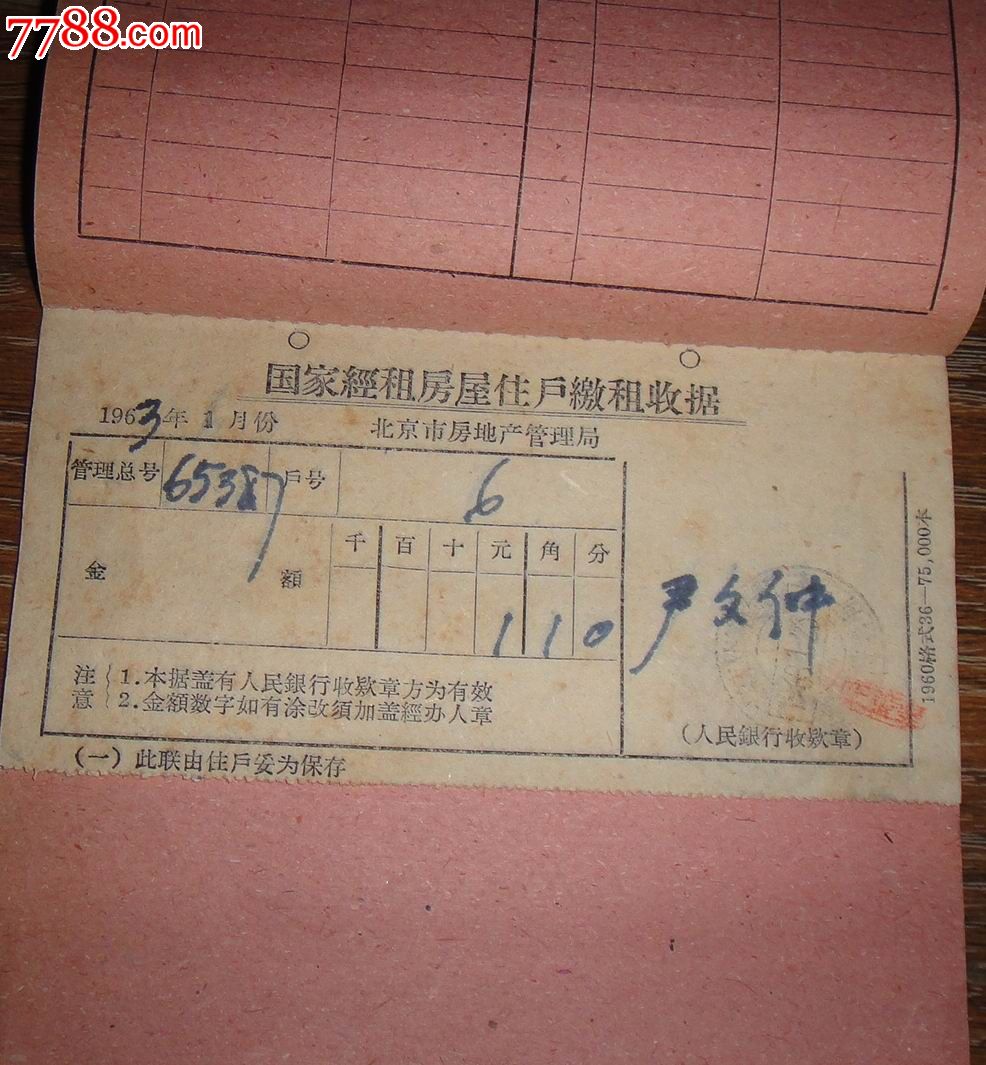 7788.com
国家經租房屋住戶繳租收据
1963年1月份 北京市房地产管理局
管理总号 65387 戶号 6
金額 千 百 十 元 角 分
1 1 0
尹文仲
注意 1.本据盖有人民銀行收欵章方为有效
2.金額数字如有涂改須加盖經办人章
(人民銀行收欵章)
(一)此联由住戶妥为保存
1960格式36—75,000本